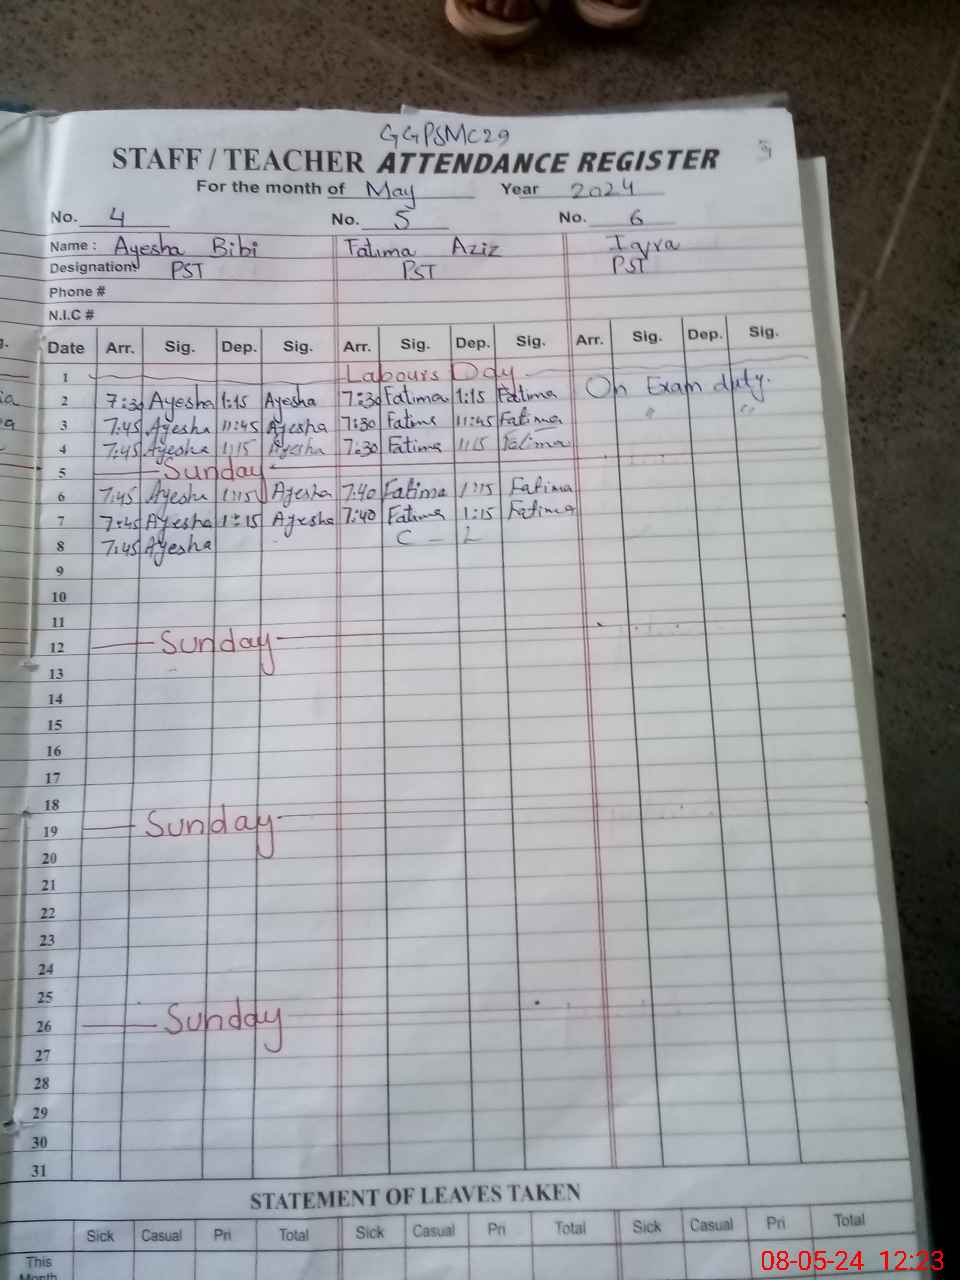 GGPSMC29
STAFF / TEACHER ATTENDANCE REGISTER
For the month of May Year 2024
No. 4 No. 5 No. 6
Name : Ayesha Bibi Fatima Aziz Iqra
Designation: PST PST PST
Phone #
N.I.C #
Date Arr. Sig. Dep. Sig. Arr. Sig. Dep. Sig. Arr. Sig. Dep. Sig.
1 Labours Day
2 7:30 Ayesha 1:15 Ayesha 7:30 Fatima 1:15 Fatima On Exam duty.
3 7:45 Ayesha 11:45 Ayesha 7:30 Fatima 11:45 Fatima " "
4 7:45 Ayesha 1:15 Ayesha 7:30 Fatima 1:15 Fatima
5 Sunday
6 7:45 Ayesha 1:15 Ayesha 7:40 Fatima 1:15 Fatima
7 7:45 Ayesha 1:15 Ayesha 7:40 Fatima 1:15 Fatima
8 7:45 Ayesha C - L
9
10
11
12 Sunday
13
14
15
16
17
18
19 Sunday
20
21
22
23
24
25
26 Sunday
27
28
29
30
31
STATEMENT OF LEAVES TAKEN
Sick Casual Pri Total Sick Casual Pri Total Sick Casual Pri Total
This
Month
08-05-24 12:23